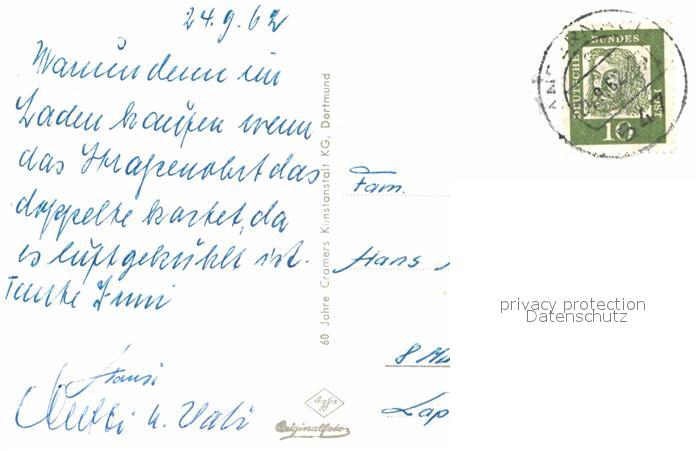 24.9.62
Warum denn im
Laden kaufen wenn
das Straßenobst das
doppelte kostet, da
es luftgekühlt ist.
Tante Irmi
Hansi
Mutti u. Vati
60 Jahre Cramers Kunstanstalt KG, Dortmund
Agfa
Originalfoto
DEUTSCHE BUNDESPOST
10
Fam.
Hans
8 Mü
Lap
privacy protection
Datenschutz